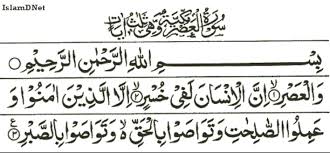 IslamDNet
سُوْرَةُ الْعَصْرِ مَكِّيَّةٌ وَّهِيَ ثَلٰثُ اٰيَاتٍ
بِسْمِ اللهِ الرَّحْمٰنِ الرَّحِيْمِ ○
وَالْعَصْرِ ۙ﴿١﴾ اِنَّ الْاِنْسَانَ لَفِيْ خُسْرٍ ۙ﴿٢﴾ اِلَّا الَّذِيْنَ اٰمَنُوْا وَ
عَمِلُوا الصّٰلِحٰتِ وَتَوَاصَوْا بِالْحَقِّ ۙ وَتَوَاصَوْا بِالصَّبْرِ ﴿٣﴾ ع